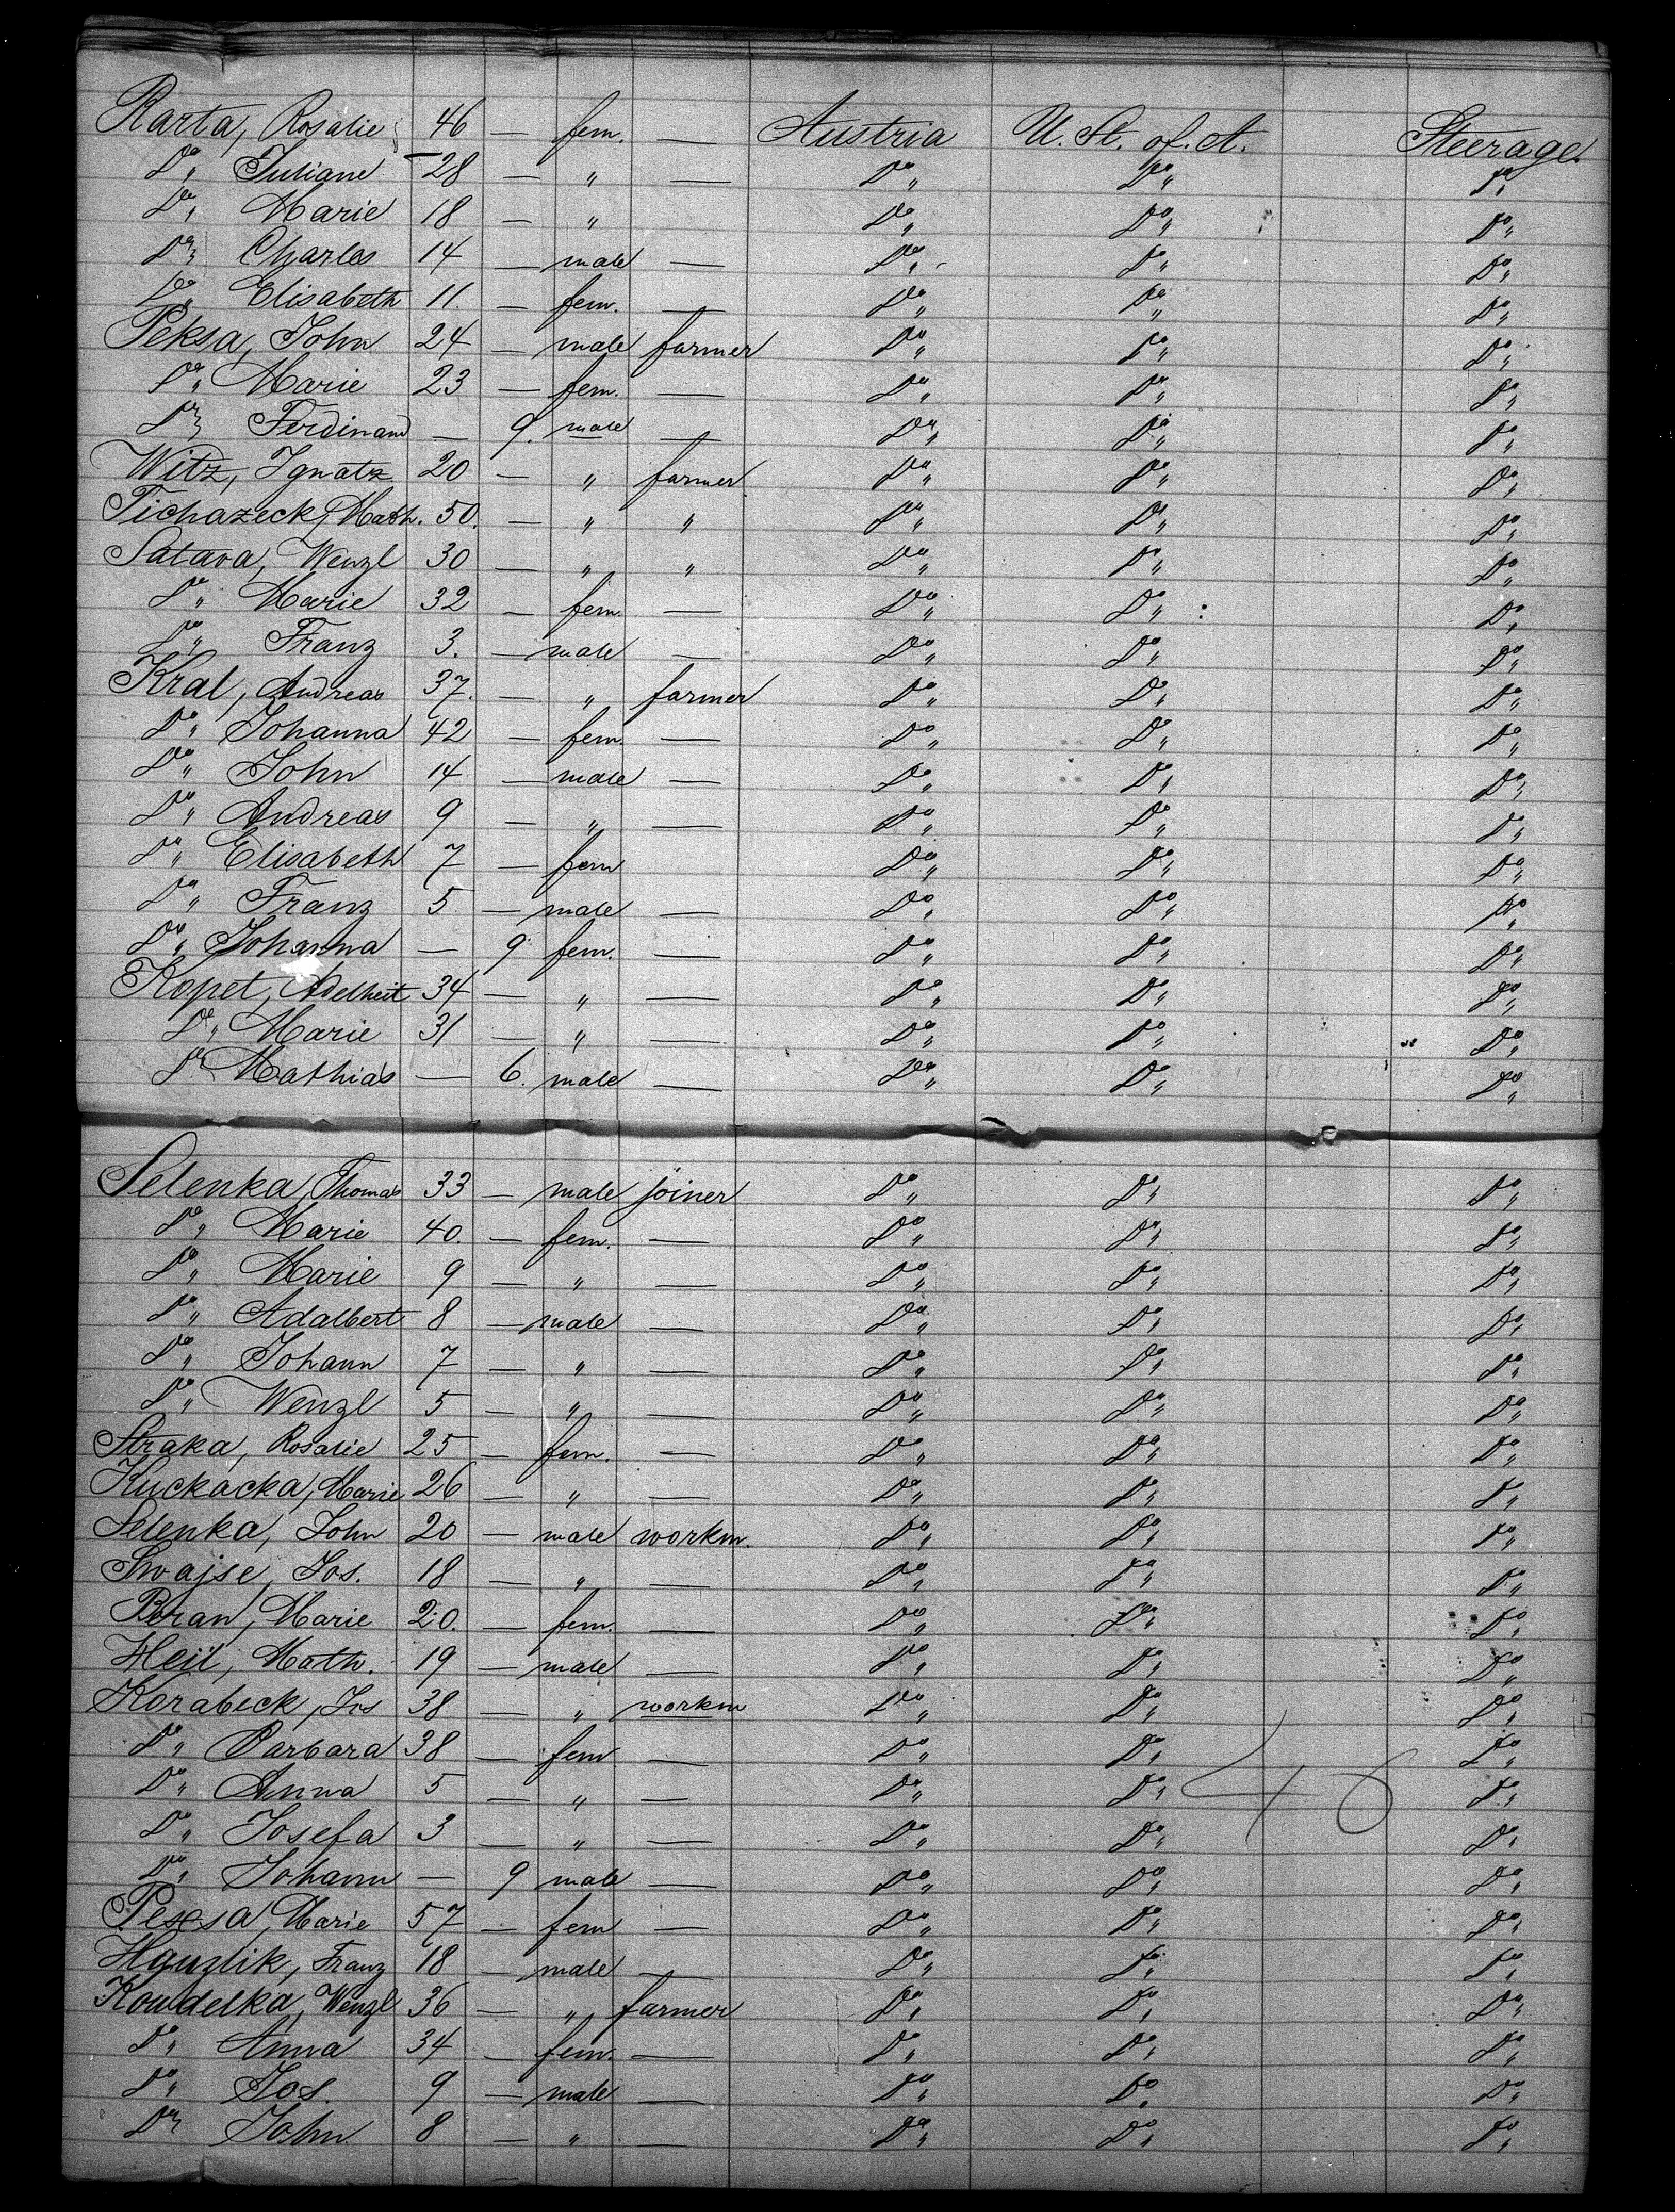 Rarta, Rosalie 46 — fem. — Austria U. St. of. A. Steerage.
Do „ Juliane 28 — „ — Do „ Do „ Do „
Do „ Marie 18 — „ Do „ Do „ Do „
Do „ Charles 14 — male — Do „ Do „ Do „
Do „ Elisabeth 11. — fem. — Do „ Do „ Do „
Peksa, John 24 — male farmer Do „ Do „ Do „
Do „ Marie 23 — fem. — Do „ Do „ Do „
Do „ Ferdinand — 9. male — Do „ Do „ Do „
Witz, Ignatz 20 — „ farmer Do „ Do „ Do „
Tichazeck, Math. 50. — „ „ Do „ Do „ Do „
Satava, Wenzl 30 — „ „ Do „ Do „ Do „
Do „ Marie 32 — fem. — Do „ Do „ Do „
Do „ Franz 3. — male — Do „ Do „ Do „
Kral, Andreas 37. — „ farmer Do „ Do „ Do „
Do „ Johanna 42 — fem. — Do „ Do „ Do „
Do „ John 14 — male — Do „ Do „ Do „
Do „ Andreas 9 — „ — Do „ Do „ Do „
Do „ Elisabeth 7 — fem Do „ Do „ Do „
Do „ Franz 5 — male — Do „ Do „ Do „
Do „ Johanna — 9. fem. — Do „ Do „ Do „
Kopet, Adelheit 34 — „ — Do „ Do „ Do „
Do „ Marie 31 — „ — Do „ Do „ Do „
Do „ Mathias — 6. male — Do „ Do „ Do „
Selenka, Thomas 33 — male joiner Do „ Do „ Do „
Do „ Marie 40. — fem. — Do „ Do „ Do „
Do „ Marie 9 — „ — Do „ Do „ Do „
Do „ Adalbert 8 — male — Do „ Do „ Do „
Do „ Johann 7 — „ — Do „ Do „ Do „
Do „ Wenzl 5 — „ — Do „ Do „ Do „
Straka, Rosalie 25 — fem. — Do „ Do „ Do „
Kuckacka, Marie 26 — „ — Do „ Do „ Do „
Selenka, John 20 — male workm. Do „ Do „ Do „
Swajse, Jos. 18 — „ — Do „ Do „ Do „
Beran, Marie 20. — fem. — Do „ Do „ Do „
Heil, Math. 19 — male — Do „ Do „ Do „
Korabeck, Jos 38 — „ workm Do „ Do „ Do „
Do „ Barbara 38 — fem — Do „ Do „ Do „
Do „ Anna 5 — „ — Do „ Do „ Do „
Do „ Josefa 3 — „ — Do „ Do „ Do „
Do „ Johann — 9 male — Do „ Do „ Do „
Marie 57 — fem — Do „ Do „ Do „
Hauzlik, Franz 18 — male — Do „ Do „ Do „
Koudelka, Wenzl 36 — „ farmer Do „ Do „ Do „
Do „ Anna 34 — fem. — Do „ Do „ Do „
Do „ Jos. 9 — male — Do „ Do „ Do „
Do „ John 8 — „ — Do „ Do „ Do „